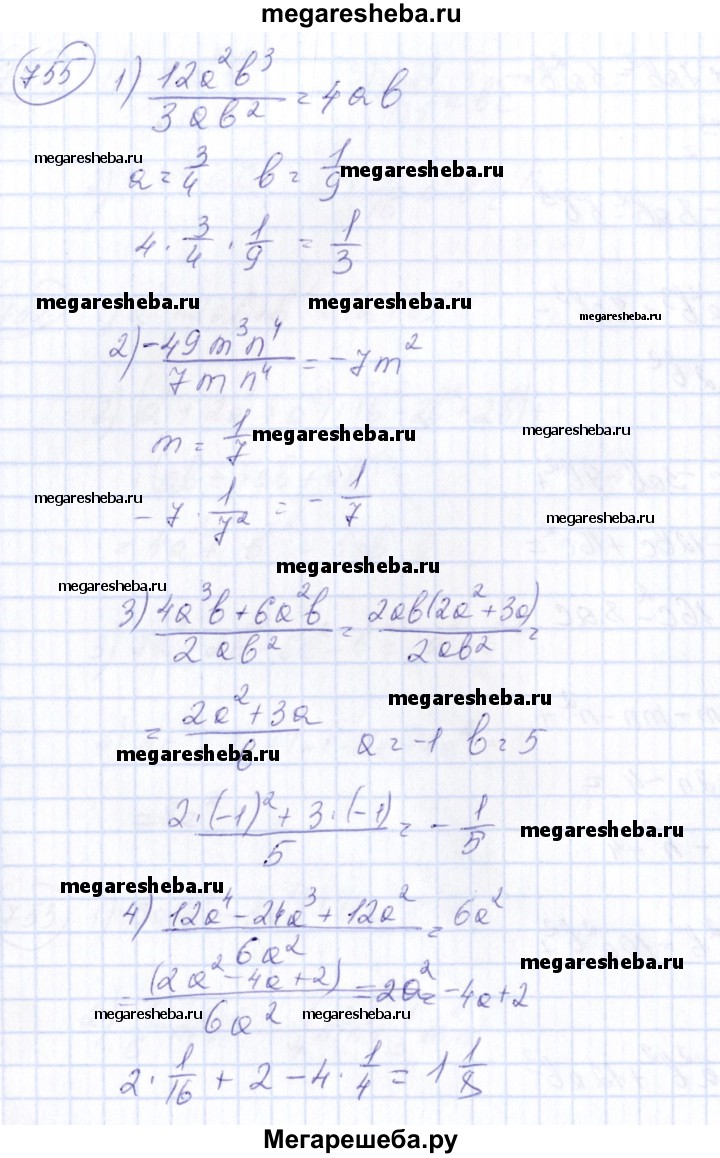 megaresheba.ru
755 1) 12a²b³ / 3ab² = 4ab
megaresheba.ru a = 3/4 b = 1/9 megaresheba.ru
4 · 3/4 · 1/9 = 1/3
megaresheba.ru megaresheba.ru megaresheba.ru
2) -49m³n⁴ / 7mn⁴ = -7m²
m = 1/7 megaresheba.ru megaresheba.ru
megaresheba.ru - 7 · 1/7² = - 1/7 megaresheba.ru
megaresheba.ru
megaresheba.ru
3) 4a³b + 6a²b / 2ab² = 2ab(2a² + 3a) / 2ab² =
megaresheba.ru
= 2a² + 3a / b a = -1 b = 5
megaresheba.ru
2 · (-1)² + 3 · (-1) / 5 = - 1/5 megaresheba.ru
megaresheba.ru
4) 12a⁴ - 24a³ + 12a² / 6a² = 6a²
megaresheba.ru
= (2a² - 4a + 2) / 6a² = 2a² - 4a + 2
megaresheba.ru megaresheba.ru
2 · 1/16 + 2 - 4 · 1/4 = 1 1/8
Мегарешеба.ру